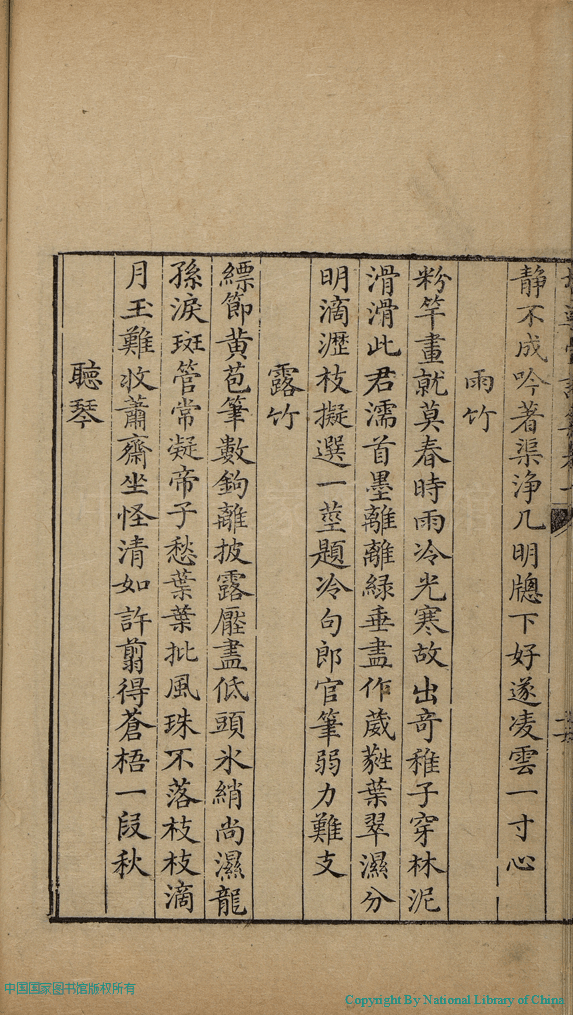 靜不成吟著渠淨几明牕下好遂凌雲一寸心
雨竹
粉竿畫就莫春時雨冷光寒故出奇稚子穿林泥
滑滑此君濡首墨離離綠垂盡作葳蕤葉翠濕分
明滴瀝枝擬選一莖題冷句郎官筆弱力難支
露竹
縹節黃苞筆數鉤離披露壓盡低頭氷綃尚濕龍
孫淚斑管常凝帝子愁葉葉批風珠不落枝枝滴
月玉難收蕭齋坐怪清如許翦得蒼梧一段秋
聽琴
中国国家图书馆版权所有
Copyright By National Library of China